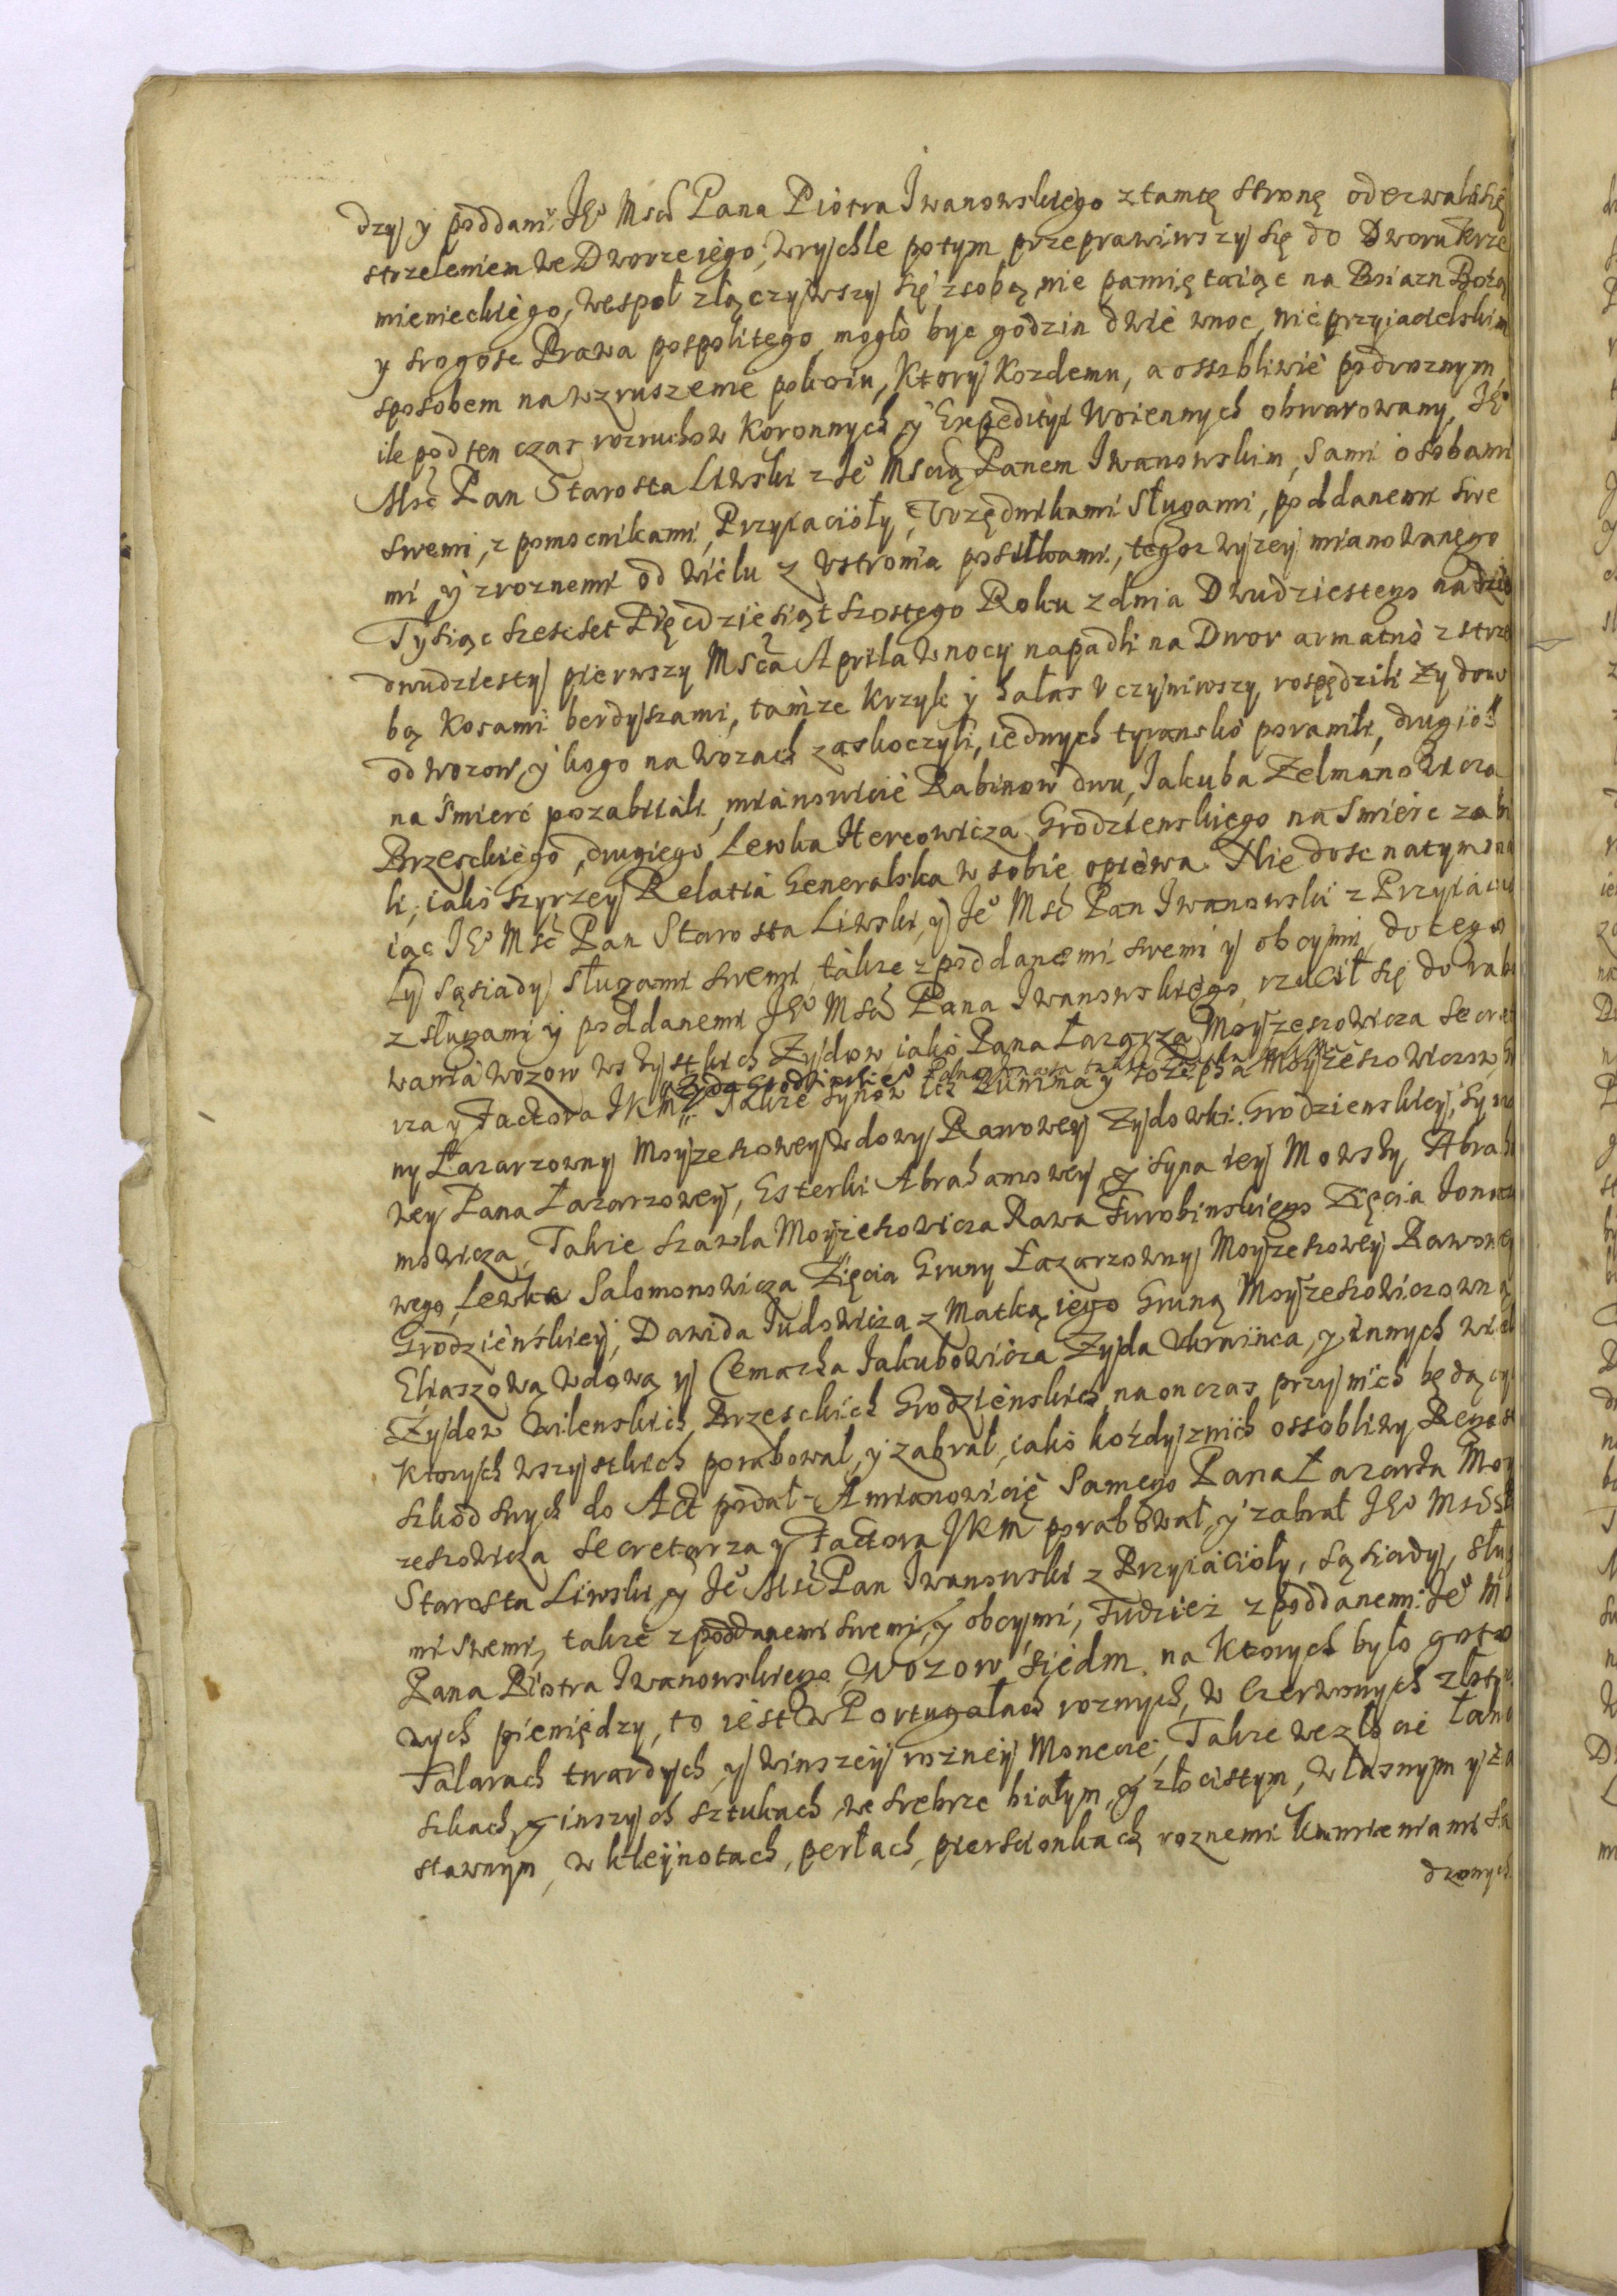 dzy y poddani Je° Mści Pana Piotra Iwanowskiego z tamtę stronę oderwali się
strzeleniem we Dworze iego, wrychle potym przeprawiwszy się do Dworu krze
mienieckiego, wespoł złączywszy się z sobą, nie pamiętaiąc na Boiazn Bożą
y srogość Prawa pospolitego, mogło byc godzin dwie w noc, nieprzyiacielskim
sposobem na wzruszenie pokoiu, ktory kozdemu, a ossobliwie podroznym
ile pod ten czas rozruchow koronnych y Expedityi woiennych obwarowany, Je°
Mść Pan Starosta Liwski z Je° Mścią Panem Iwanowskim, sami osobami
swemi, z pomocnikami, Przyiacioły, Vrzędnikami Sługami, poddanemi swe
mi y z roznemi od wielu z Vstronia posiłkami, tegoz wyzey mianowanego
Tysiąc szescset Pięcdziesiąt szostego Roku z dnia Dwudziestego na dzien
dwudziesty pierwszy Mscа Aprila w nocy napadli na Dwor armatno z strze
bą kosami berdyszami, tamze krzyk y hałas vczyniwszy, rospędzili Zydow
od wozow, y kogo na wozach zaskoczyli, iednych tyransko poranili, drugich
na śmierć pozabiiali, mianowicie Rabinow dwu, Jakuba Zelmanowicza
Brzeskiego, drugiego Lewka Hercowicza Grodzienskiego na śmierc zabi
li, iako szyrzey Relatia Generalska w sobie opiewa. Nie dosc na tym ma
iąc Je° Mść Pan Starosta Liwski, y Je° Mść Pan Iwanowski z Przyiacio
ły Sąsiady Sługami swemi, takze z poddanemi swemi y obcymi, do tego
z sługami y poddanemi Je° Mści Pana Iwanowskiego, rzucił się do rabo
wania wozow wszystkich Zydow iako Pana Łazarza Moyzeszowicza Secreta
Zyda Grodzinskie°
rza y Factora JKM. Takze Synow y Iozepha Moyzeszowiczow,
ny Łazarzowny Moyzeszowey wdowy Rawowey Zydowki Grodzienskiey, Syno
wey Pana Łazarzowey, Esterki Abrahamowey, y syna iey Mowszy Abraha
mowicza, Takze Szawla Moyzeszowicza Rawa Turobinskiego Zięcia
wego, Lewka Salomonowicza Zięcia Gruny Łazarzowny Moyzeszowey Rawowey
Grodzieńskiey, Dawida Judowicza z Matką iego Gruną Moyzeszowiczowną
Eliaszową wdową y Cemacha Jakubowicza Zyda Ukraiinca, y innych wielu
Zydow Wilenskich, Brzeskich Grodzieńskich, na on czas przy nich będących
ktorych wszystkich porabował, y zabrał, iako kożdy z nich ossobliwy Regestr
szkod swych do Act podał. A mianowicie samego Pana Łazarza Moy
zeszowicza Secretarza y Factora JKM porabował, y zabrał Je° Mść
Starosta Liwski, y Je° Mść Pan Iwanowski z Przyiacioły, sąsiady, sługa
mi swemi, takze z poddanemi swemi, y obcymi, Tudziez z poddanemi Je° M
Pana Piotra Iwanowskiego, Wozow siedm. na ktorych było goto
wych pieniędzy, to iest w Portugałach roznych, w Czerwonych złotych
Talarach twardych, y w inszey rozney Monecie, Takze we złocie Łancu
szkach, y inszych sztukach, we srebrze białym, y złocistym, własnym y za
stawnym, w kleynotach, perłach, pierscionkach roznemi kamieniami sa
dzonych